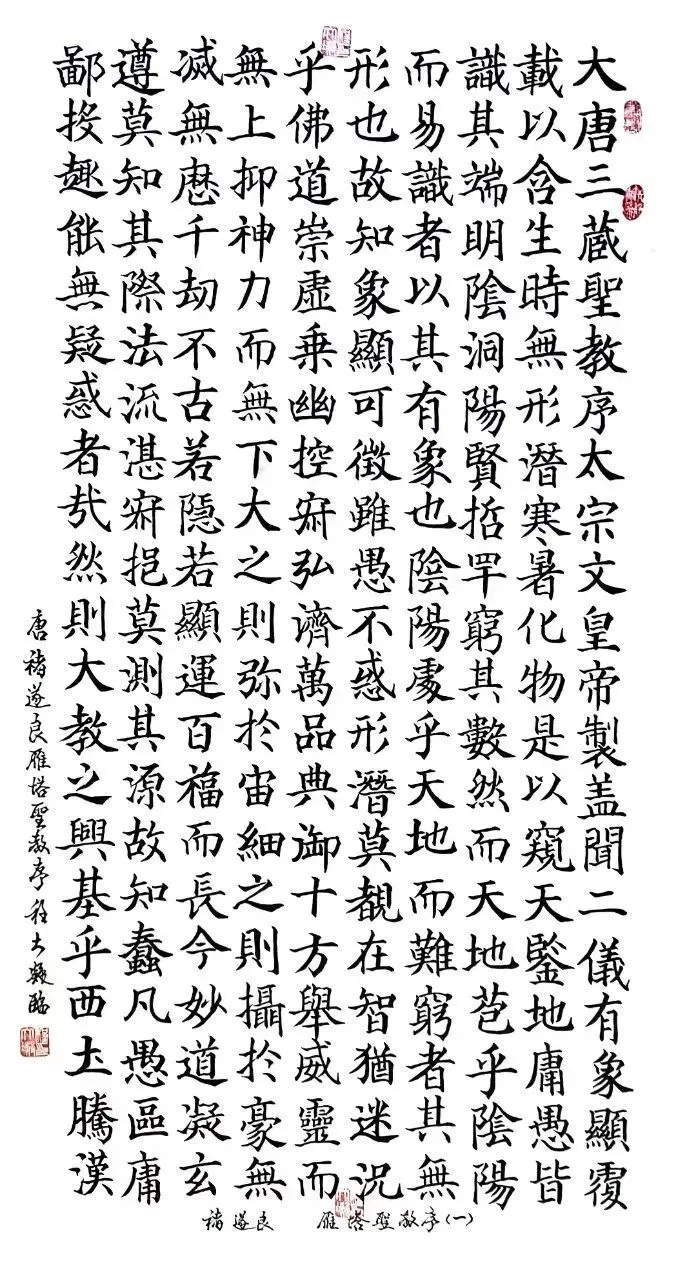 大唐三蔵聖教序太宗文皇帝製盖聞二儀有象顯覆
載以含生時無形潛寒暑化物是以窺天鑒地庸愚皆
識其端明陰洞陽賢哲罕窮其數然而天地苞乎陰陽
而易識者以其有象也陰陽處乎天地而難窮者其無
形也故知象顯可徵雖愚不惑形潛莫覩在智猶迷況
乎佛道崇虛乘幽控寂弘濟萬品典御十方舉威靈而
無上抑神力而無下大之則弥於宙細之則攝於豪無
滅無歷千劫不古若隱若顯運百福而長今妙道凝玄
遵莫知其際法流湛寂挹莫測其源故知蠢凡愚區庸
鄙投趣能無疑惑者哉然則大教之興基乎西土騰漢
唐褚遂良雁塔聖教序程大凝臨
褚遂良 雁塔聖教序(一)